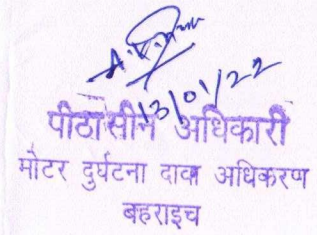 13/01/22
पीठासीन अधिकारी
मोटर दुर्घटना दावा अधिकरण
बहराइच